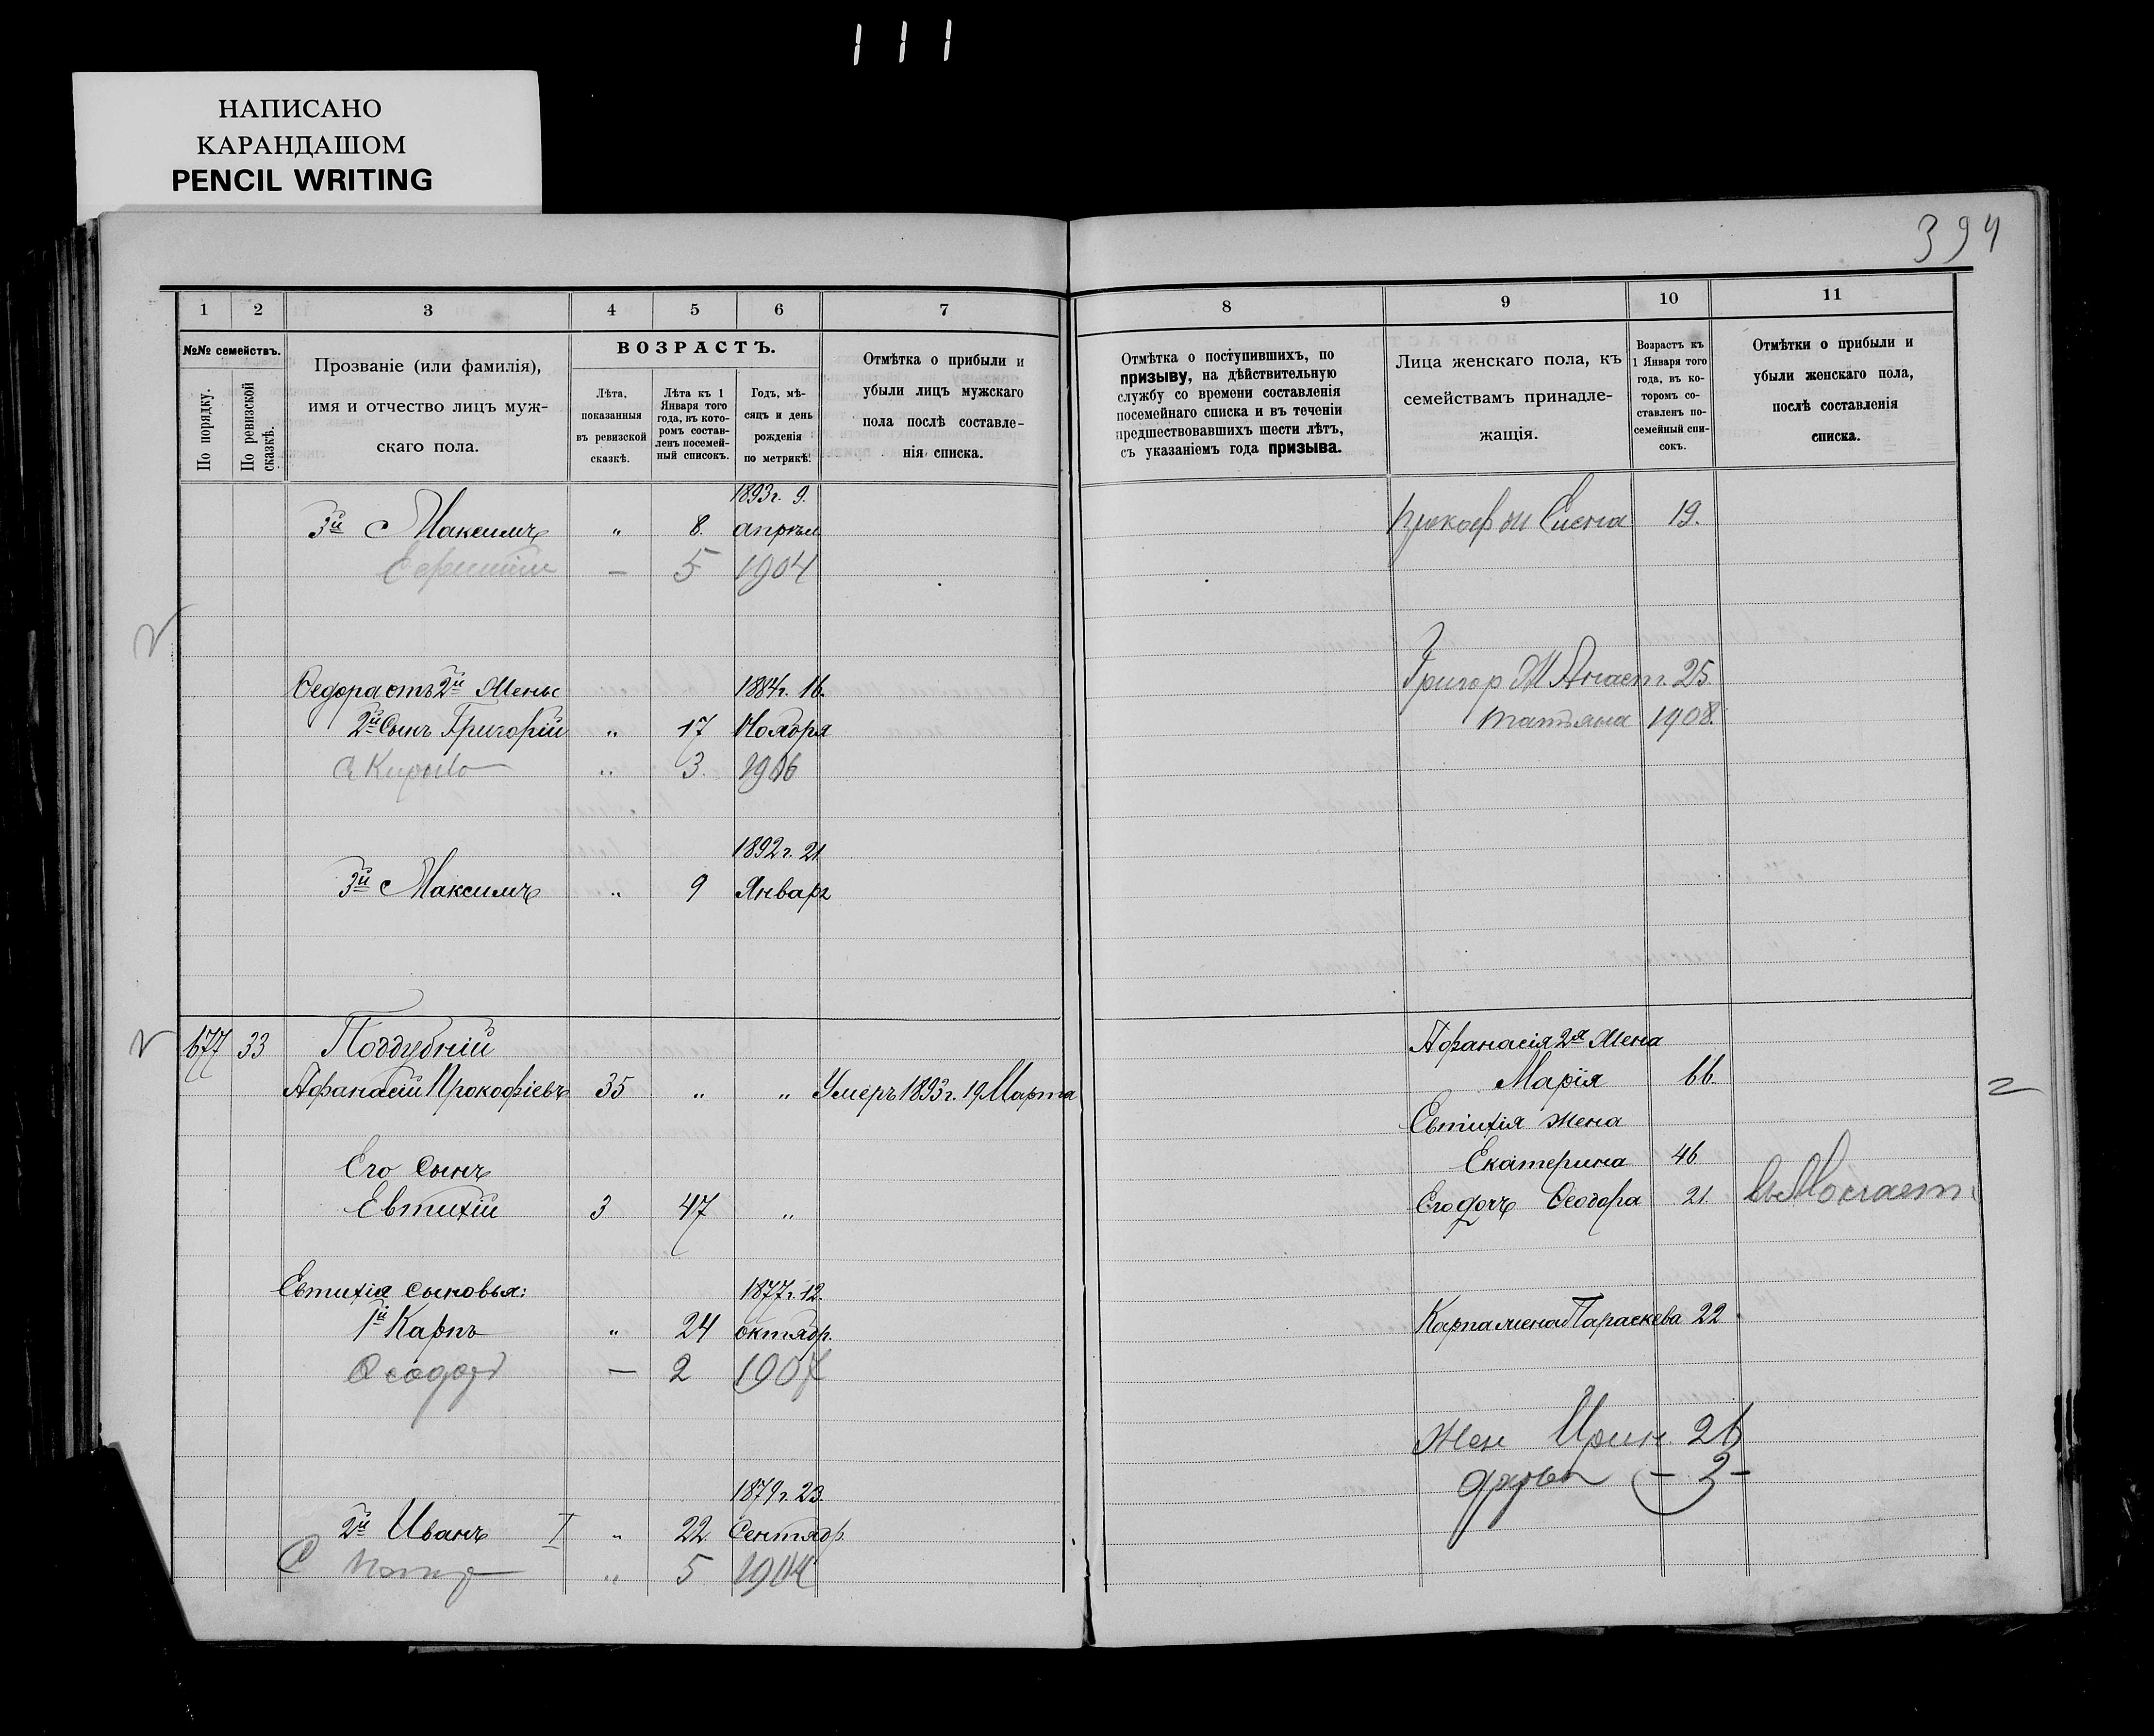 111
НАПИСАНО
КАРАНДАШОМ
PENCIL WRITING
394
1 2 3 4 5 6 7
№№ семействъ.
По порядку.
По ревизской сказкѣ.
Прозваніе (или фамилія),
имя и отчество лицъ муж-
скаго пола.
ВОЗРАСТЪ.
Лѣта,
показанныя
въ ревизской
сказкѣ.
Лѣта къ 1
Января того
года, въ кото-
ромъ состав-
ленъ посемей-
ный списокъ.
Годъ, мѣ-
сяцъ и день
рожденія
по метрикѣ.
Отмѣтка о прибыли и
убыли лицъ мужскаго
пола послѣ составле-
нія списка.
1893 г. 9.
3й Максимъ " 8. апрѣл
— 5 1904
Ѳедора отъ 2й жены 1884 г. 16.
2й Сынъ Григорій " 17 Ноября
" 3. 1906
1892 г. 21
3й Максимъ " 9 Январ
677 33 Поддубній
Афанасій Прокофіевъ 35 " " Умеръ 1893 г. 19 Марта
Его Сынъ
Евтихій 3 47 "
Евтихія сыновья: 1877 г. 12.
1й Карпъ " 24 октябр.
Ѳеодор — 2 1907
1879 г. 23.
2й Иванъ I " 22 Сентябр.
С " 5 1904
8 9 10 11
Отмѣтка о поступившихъ, по
призыву, на дѣйствительную
службу со времени составленія
посемейнаго списка и въ теченіи
предшествовавшихъ шести лѣтъ,
съ указаніемъ года призыва.
Лица женскаго пола, къ
семействамъ принадле-
жащія.
Возрастъ къ
1 Января того
года, въ ко-
торомъ со-
ставленъ по-
семейный спи-
сокъ.
Отмѣтки о прибыли и
убыли женскаго пола,
послѣ составленія
списка.
19.
Григор Ж Анаст. 25.
Татьяна 1908.
Афанасія 2я жена
Марія 66.
Евтихія жена
Екатерина 46.
Его дочъ Ѳеодора 21.
Карпа жена Параскева 22
Жен Ирин 26
— 3 —